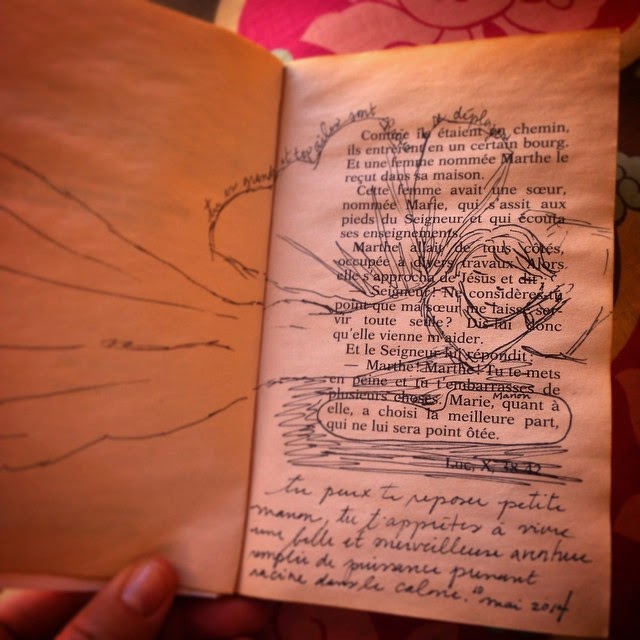 tes ailes sont
Comme ils étaient en chemin,
ils entrèrent en un certain bourg.
Et une femme nommée Marthe le
reçut dans sa maison.
Cette femme avait une sœur,
nommée Marie, qui s'assit aux
pieds du Seigneur et qui écouta
ses enseignements.
Marthe allait de tous côtés,
occupée à divers travaux. Alors
elle s'approcha de Jésus et dit :
Seigneur! Ne considères-tu
point que ma sœur me laisse ser-
vir toute seule? Dis-lui donc
qu'elle vienne m'aider.
Et le Seigneur lui répondit :
— Marthe! Marthe! Tu te mets
en peine et tu t'embarrasses de
Manon
plusieurs choses. Marie, quant à
elle, a choisi la meilleure part,
qui ne lui sera point ôtée.
Luc, X, 38-42
tu peux te reposer petite
manon, tu t'apprêtes à vivre
une belle et merveilleuse aventure
remplie de puissance prenant
racine dans le calme. 10 mai 2014